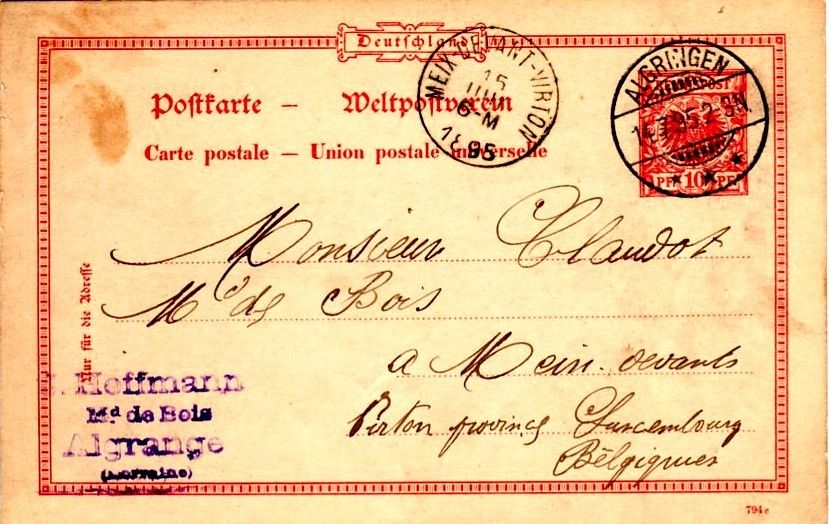 Deutschland
Postkarte – Weltpostverein
Carte postale – Union postale universelle
MEIX-DEVANT-VIRTON
15
6-M
1895
ALGRINGEN
95.2-3N.
10 PF
Nur für die Adresse
Monsieur Claudot
Md de Bois
a Meix-devants
Virton province Luxembourg
Bélgiques
Hoffmann
Md de Bois
Algrange
(Lorraine)
794e